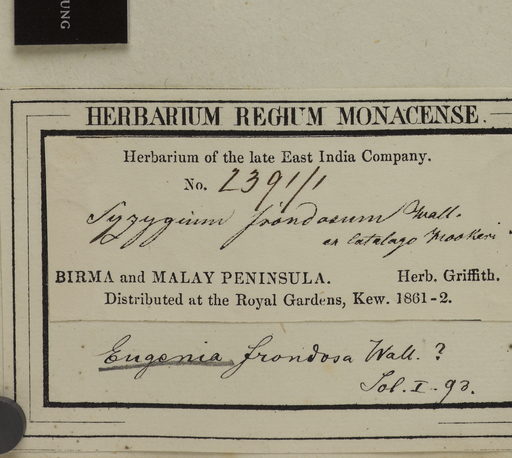 UNG
HERBARIUM REGIUM MONACENSE.
Herbarium of the late East India Company.
No. 2391/1
Syzygium frondosum Wall.
ex Catalogo Hookeri
BIRMA and MALAY PENINSULA. Herb. Griffith.
Distributed at the Royal Gardens, Kew. 1861-2.
Eugenia frondosa Wall. ?
Sol. I. 93.